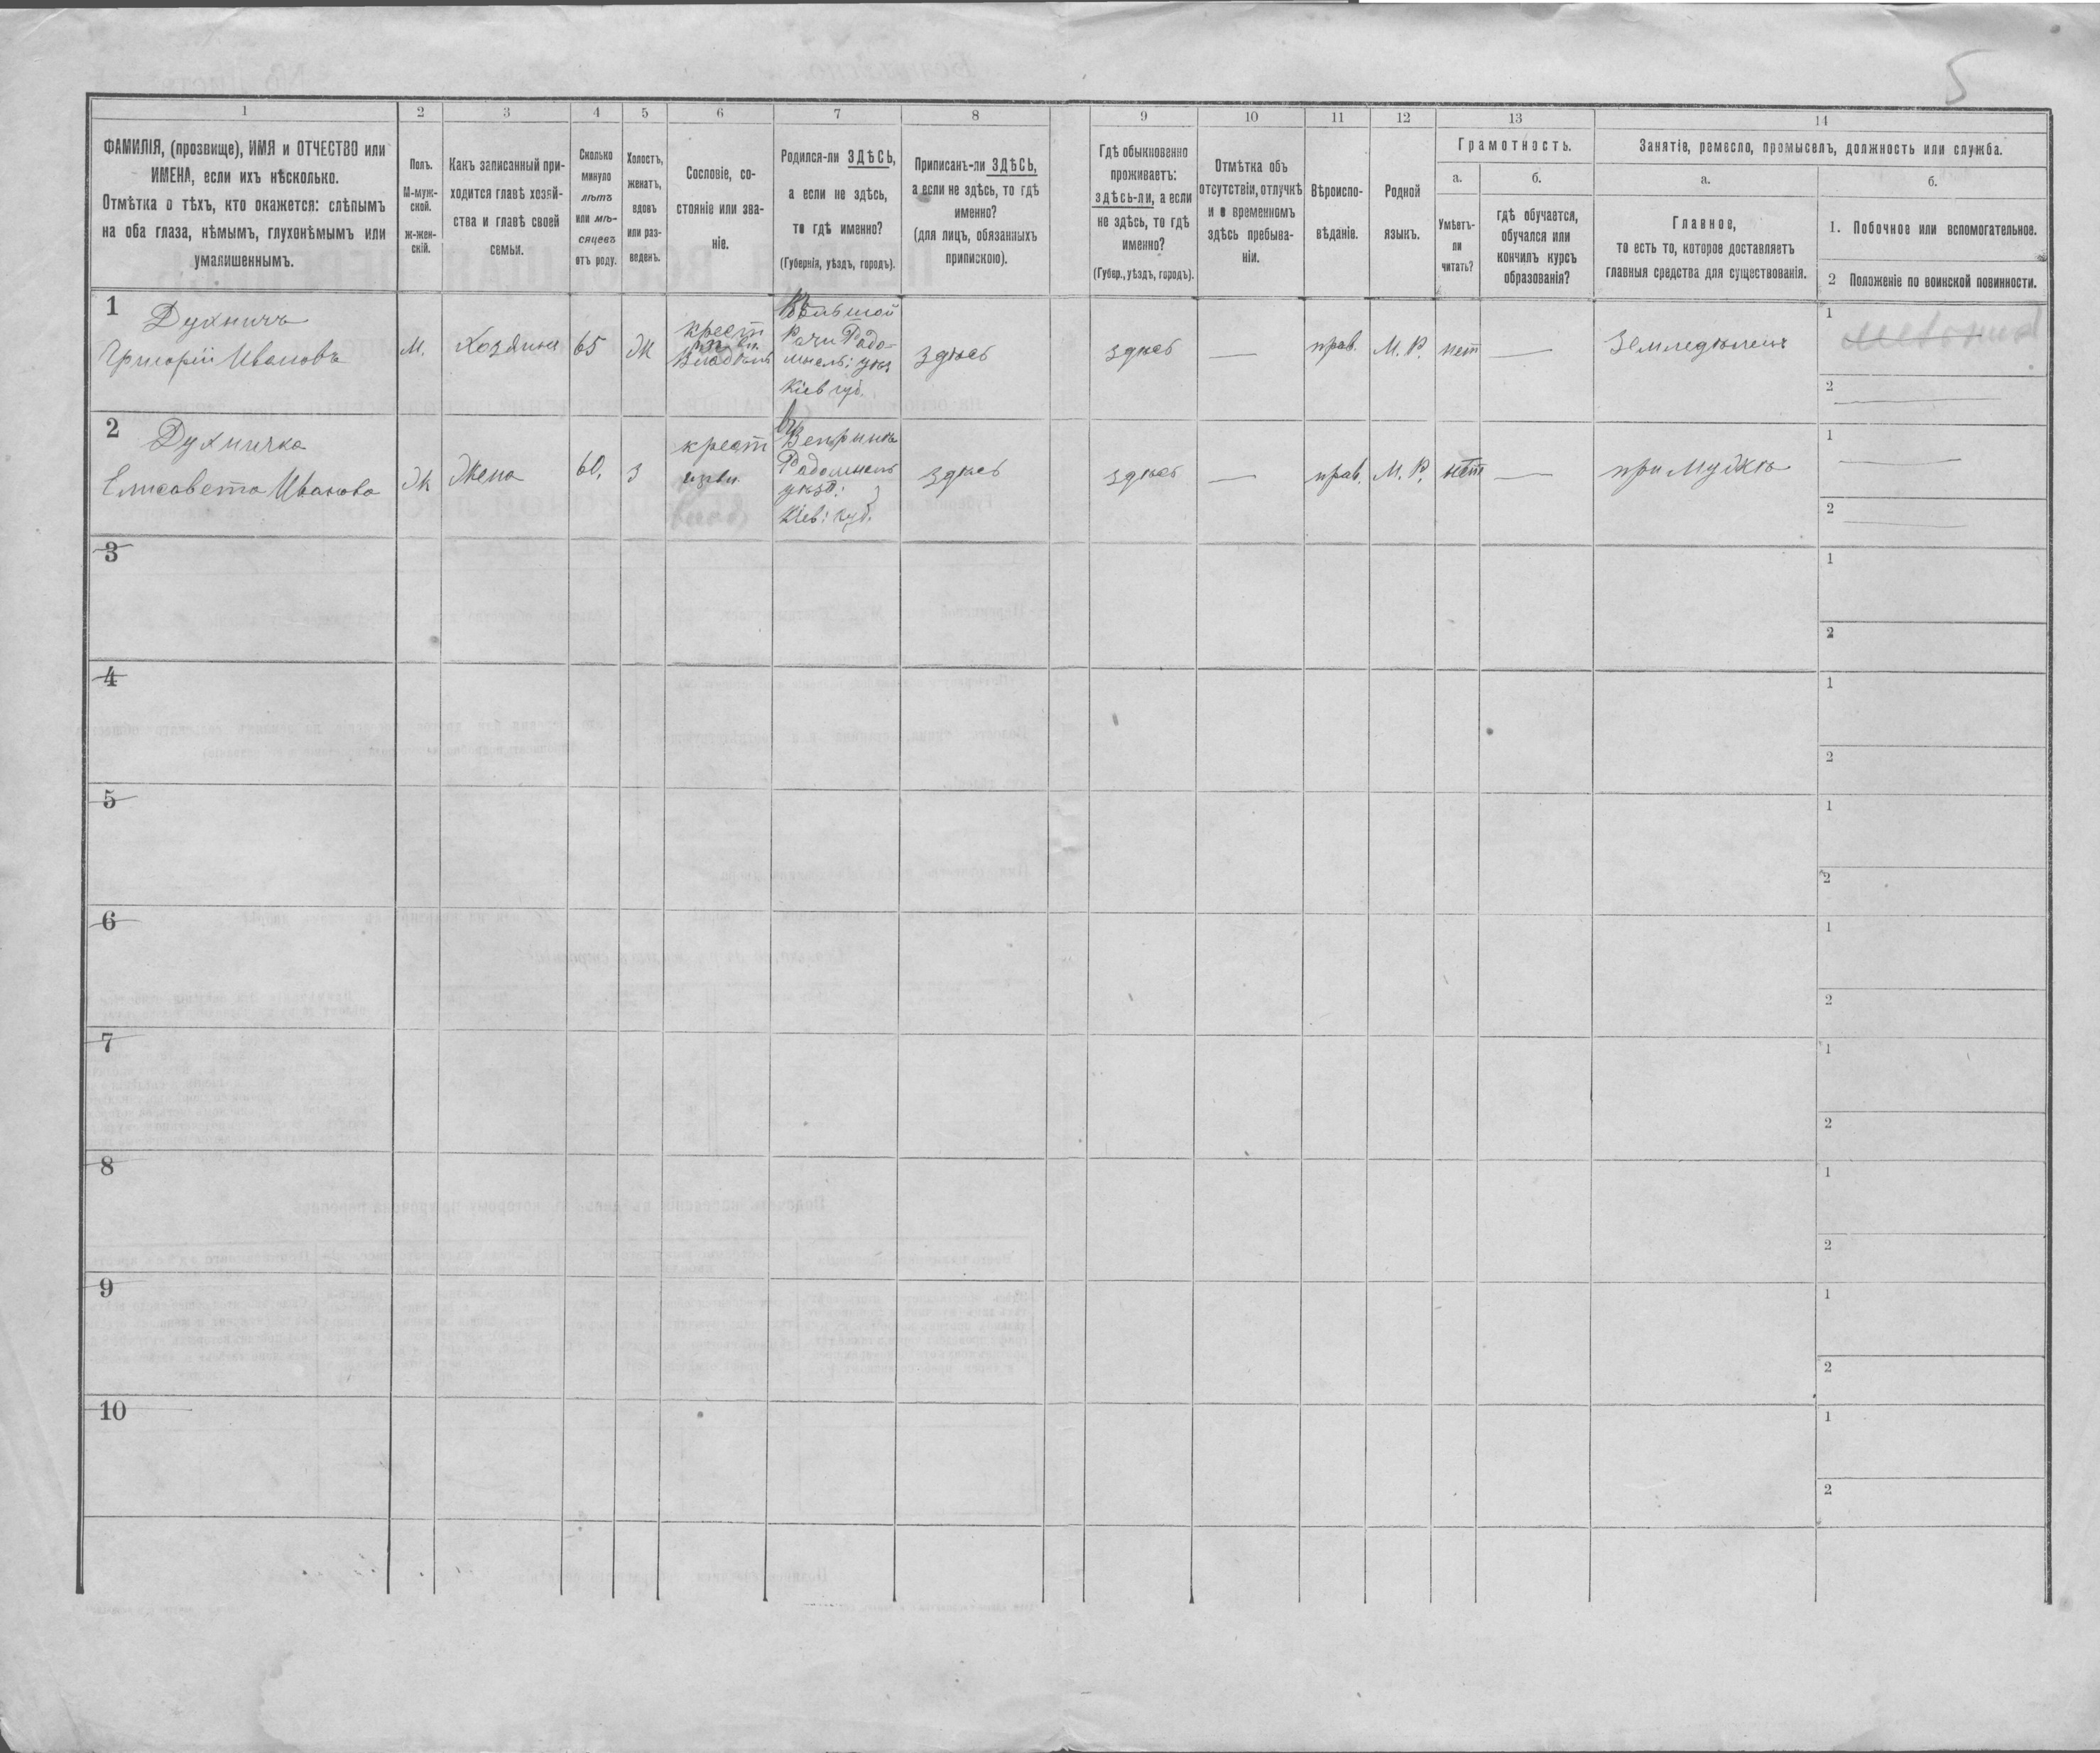 5
1
2
3
4
5
6
7
8
9
10
11
12
13
14
ФАМИЛІЯ, (прозвище), ИМЯ и ОТЧЕСТВО или
ИМЕНА, если ихъ нѣсколько.
Отмѣтка о тѣхъ, кто окажется: слѣпымъ
на оба глаза, нѣмымъ, глухонѣмымъ или
умалишеннымъ.
Полъ.
М-муж-
ской.
Ж-жен-
скій.
Какъ записанный при-
ходится главѣ хозяй-
ства и главѣ своей
семьи.
Сколько
минуло
лѣтъ
или мѣ-
сяцевъ
отъ роду.
Холостъ,
женатъ,
вдовъ
или раз-
веденъ.
Сословіе, со-
стояніе или зва-
ніе.
Родился-ли ЗДѢСЬ,
а если не здѣсь,
то гдѣ именно?
(Губернія, уѣздъ, городъ).
Приписанъ-ли ЗДѢСЬ,
а если не здѣсь, то гдѣ
именно?
(для лицъ, обязанныхъ
припискою).
Гдѣ обыкновенно
проживаетъ:
здѣсь-ли, а если
не здѣсь, то гдѣ
именно?
(Губер., уѣздъ, городъ).
Отмѣтка объ
отсутствіи, отлучкѣ
и о временномъ
здѣсь пребыва-
ніи.
Вѣроиспо-
вѣданіе.
Родной
языкъ.
Грамотность.
а.
Умѣетъ-
ли
читать?
б.
гдѣ обучается,
обучался или
кончилъ курсъ
образованія?
Занятіе, ремесло, промыселъ, должность или служба.
а.
Главное,
то есть то, которое доставляетъ
главныя средства для существованія.
б.
1. Побочное или вспомогательное.
2 Положеніе по воинской повинности.
1
Духничъ
Григорій Ивановъ
М.
Хозяинъ
65
Ж
крест
Большой
Рачи Радо-
мысль: уѣз
Кіев губ.
здѣсь
здѣсь
—
прав.
М. Р.
нет
—
Земледѣлецъ
1
2
2
Духничка
Елисавета Иванова
Ж
Жена
60.
З
крест
Веприна
Радомысль
уѣзд:
Кіев: губ.
здѣсь
здѣсь
—
прав.
М. Р.
нет
—
при Мужѣ
1
2
3
1
2
4
1
2
5
1
2
6
1
2
7
1
2
8
1
2
9
1
2
10
1
2